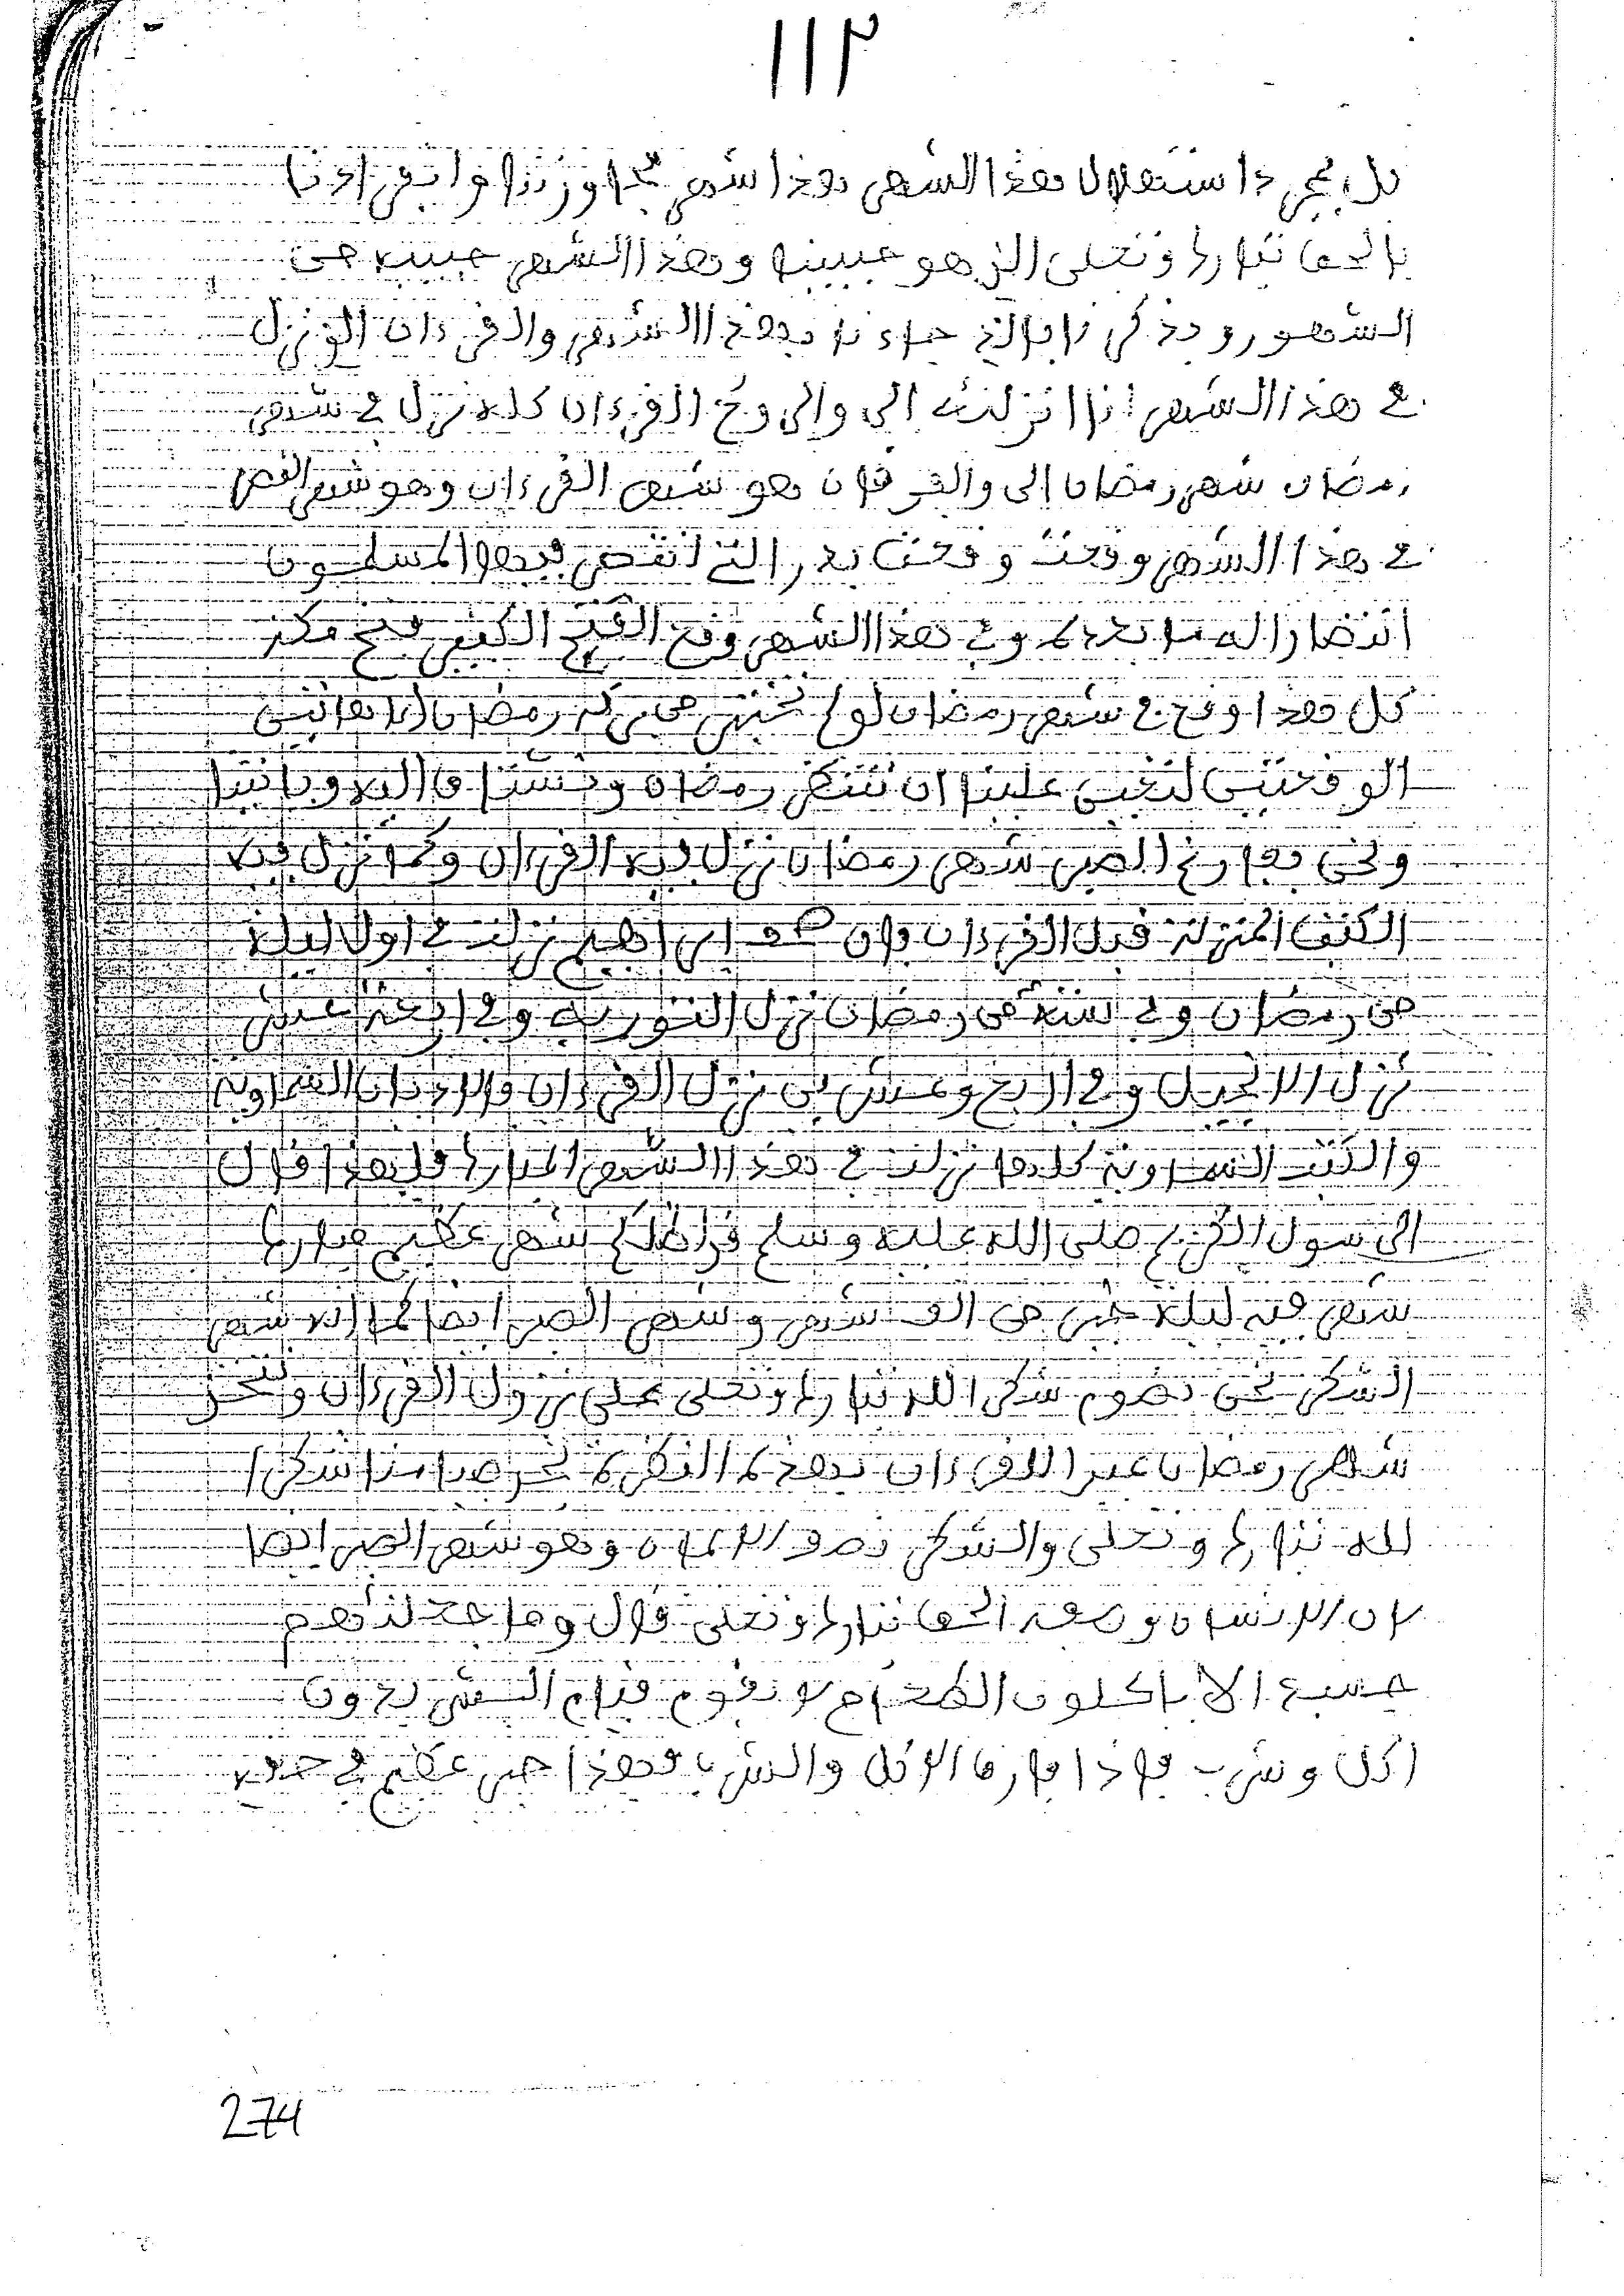 ١١٣
بل بمجرد استهلال هذا الشهر هذا شهر
بالحق تبارك وتعلى الذ هو حبيبنا وهذا الشهر حبيب من
الشهور ويذكرنا بالذ جاءنا بهذا الشهر والقرءان الذ نزل
في هذا الشهر انا انزلنه الى والى وقع القرءان كله نزل في شهر
رمضان شهر رمضان الى والفرقان هو شهر القرءان وهو شهر النصر
في هذا الشهر وقعت وقعت بدر التي انتصر فيها المسلمون
انتصارا له ما بعده وفي هذا الشهر وقع الفتح الكبير فتح مكة
كل هذا وقع في شهر رمضان لو لم من بركة رمضان الا هاتين
الوقعتين لتعين علينا ان ننتظر رمضان ونشتاق اليه وياتينا
ونحن الصبر شهر رمضان نزل فيه القرءان وكم انزل فيه
الكتب المنزلة قبل القرءان فان صحف ابراهيم نزلت في اول ليلة
من رمضان وفي ستة من رمضان نزل التورية وفي اربعة عشر
نزل الانجيل وفي اربع وعشرين نزل القرءان والاديان السماوية
والكتب السماوية كلها نزلت في هذا الشهر المبارك فلهذا قال
الرسول الكريم صلى الله عليه وسلم قد اظلكم شهر عظيم مبارك
شهر فيه ليلة خير من الف شهر وشهر الصبر ايضا كما انه شهر
الشكر نحن نصوم شكرا لله تبارك وتعلى على نزول القرءان ونتخذ
شهر رمضان عيدا للقرءان بهذه النظرة صيامنا شكرا
لله تبارك وتعلى والشكر نصف الايمان وهو شهر الصبر ايضا
لان الانسان وصفه الحق تبارك وتعلى قال وما جعلنهم
جسدا لا ياكلون الطعام لا يقوم قيام البشر بدون
اكل وشرب فاذا فارق الاكل والشرب فهذا صبر عظيم في حقه
274